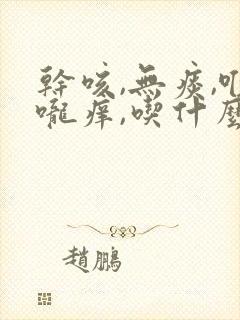 幹咳,無痰,
嚨痒,喫什麼
趙鵬